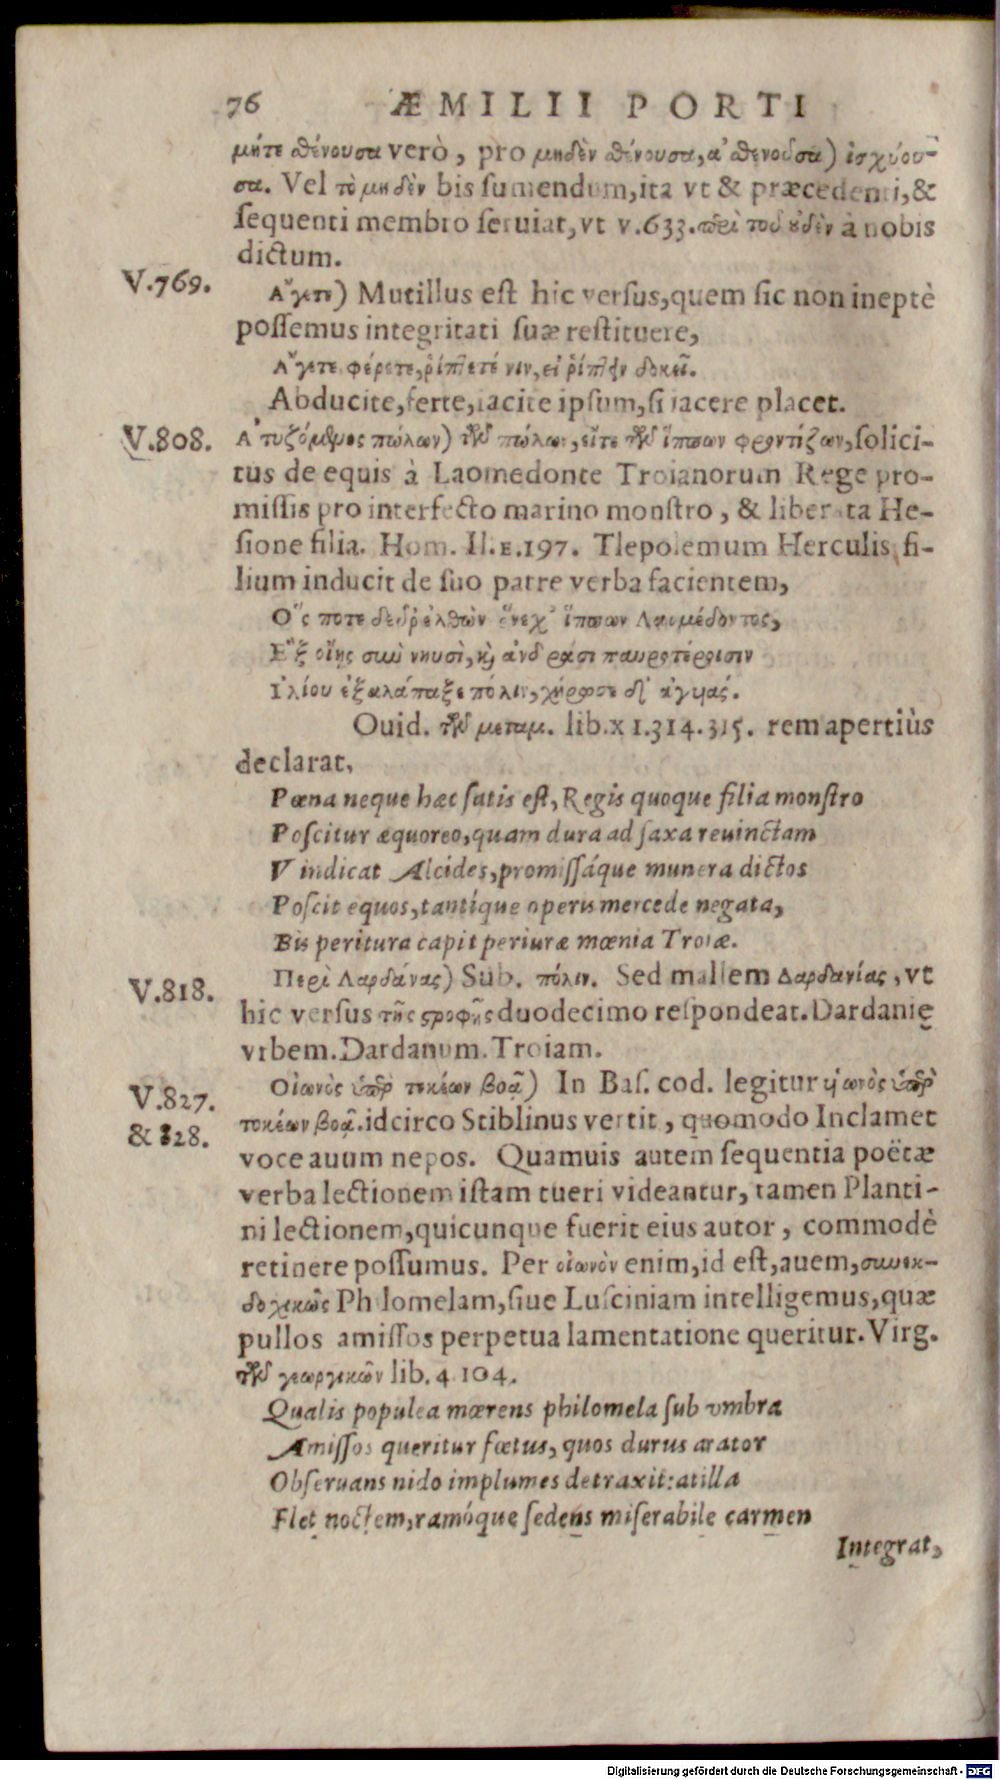 76 ÆMILII PORTI
μήτε σθένουσα verò, pro μηδὲν σθένουσα, ἀσθενοῦσα) ἰσχύου-
σα. Vel τὸ μηδὲν bis sumendum, ita vt & præcedenti, &
sequenti membro seruiat, vt v.633. περὶ τοῦ οὐδὲν à nobis
dictum.
V.769. Ἄγετε) Mutillus est hic versus, quem sic non ineptè
possemus integritati suæ restituere,
Ἄγετε φέρετε, ῥίπτετέ νιν, εἰ ῥίπτειν δοκεῖ.
Abducite, ferte, iacite ipsum, si iacere placet.
V.808. Ἀτυζόμενος πώλων) τῶν πώλων, εἴτε τῶν ἵππων φροντίζων, solici-
tus de equis à Laomedonte Troianorum Rege pro-
missis pro interfecto marino monstro, & liberata He-
sione filia. Hom. Il.E.197. Tlepolemum Herculis fi-
lium inducit de suo patre verba facientem,
Ὅς ποτε δεῦρ' ἐλθὼν ἕνεχ' ἵππων Λαομέδοντος,
Ἓξ οἴῃς σὺν νηυσὶ, καὶ ἀνδράσι παυροτέροισιν
Ἰλίου ἐξαλάπαξε πόλιν, χήρωσε δ' ἀγυιάς.
Ouid. τῶν μεταμ. lib. XI.314.315. rem apertiùs
declarat,
Pœna neque hæc satis est, Regis quoque filia monstro
Poscitur æquoreo, quam dura ad saxa reuinctam
Vindicat Alcides, promissáque munera dictos
Poscit equos, tantíque operis mercede negata,
Bis peritura capit periuræ mœnia Troiæ.
V.818. Περὶ Λαρδάνας) Sub. πόλιν. Sed mallem Δαρδανίας, vt
hic versus τῆς στροφῆς duodecimo respondeat. Dardanię
vrbem. Dardanum. Troiam.
V.827. Οἰωνὸς ὑπὲρ τεκέων βοᾷ) In Bas. cod. legitur ὑιωνὸς ὑπὲρ
& 828. τεκέων βοᾷ. idcirco Stiblinus vertit, quomodo Inclamet
voce auum nepos. Quamuis autem sequentia poëtæ
verba lectionem istam tueri videantur, tamen Planti-
ni lectionem, quicunque fuerit eius autor, commodè
retinere possumus. Per οἰωνὸν enim, id est, auem, συνεκ-
δοχικῶς Philomelam, siue Lusciniam intelligemus, quæ
pullos amissos perpetua lamentatione queritur. Virg.
τῶν γεωργικῶν lib. 4 104.
Qualis populea mœrens philomela sub vmbra
Amissos queritur fœtus, quos durus arator
Obseruans nido implumes detraxit: at illa
Flet noctem, ramóque sedens miserabile carmen
Integrat,
Digitalisierung gefördert durch die Deutsche Forschungsgemeinschaft - DFG